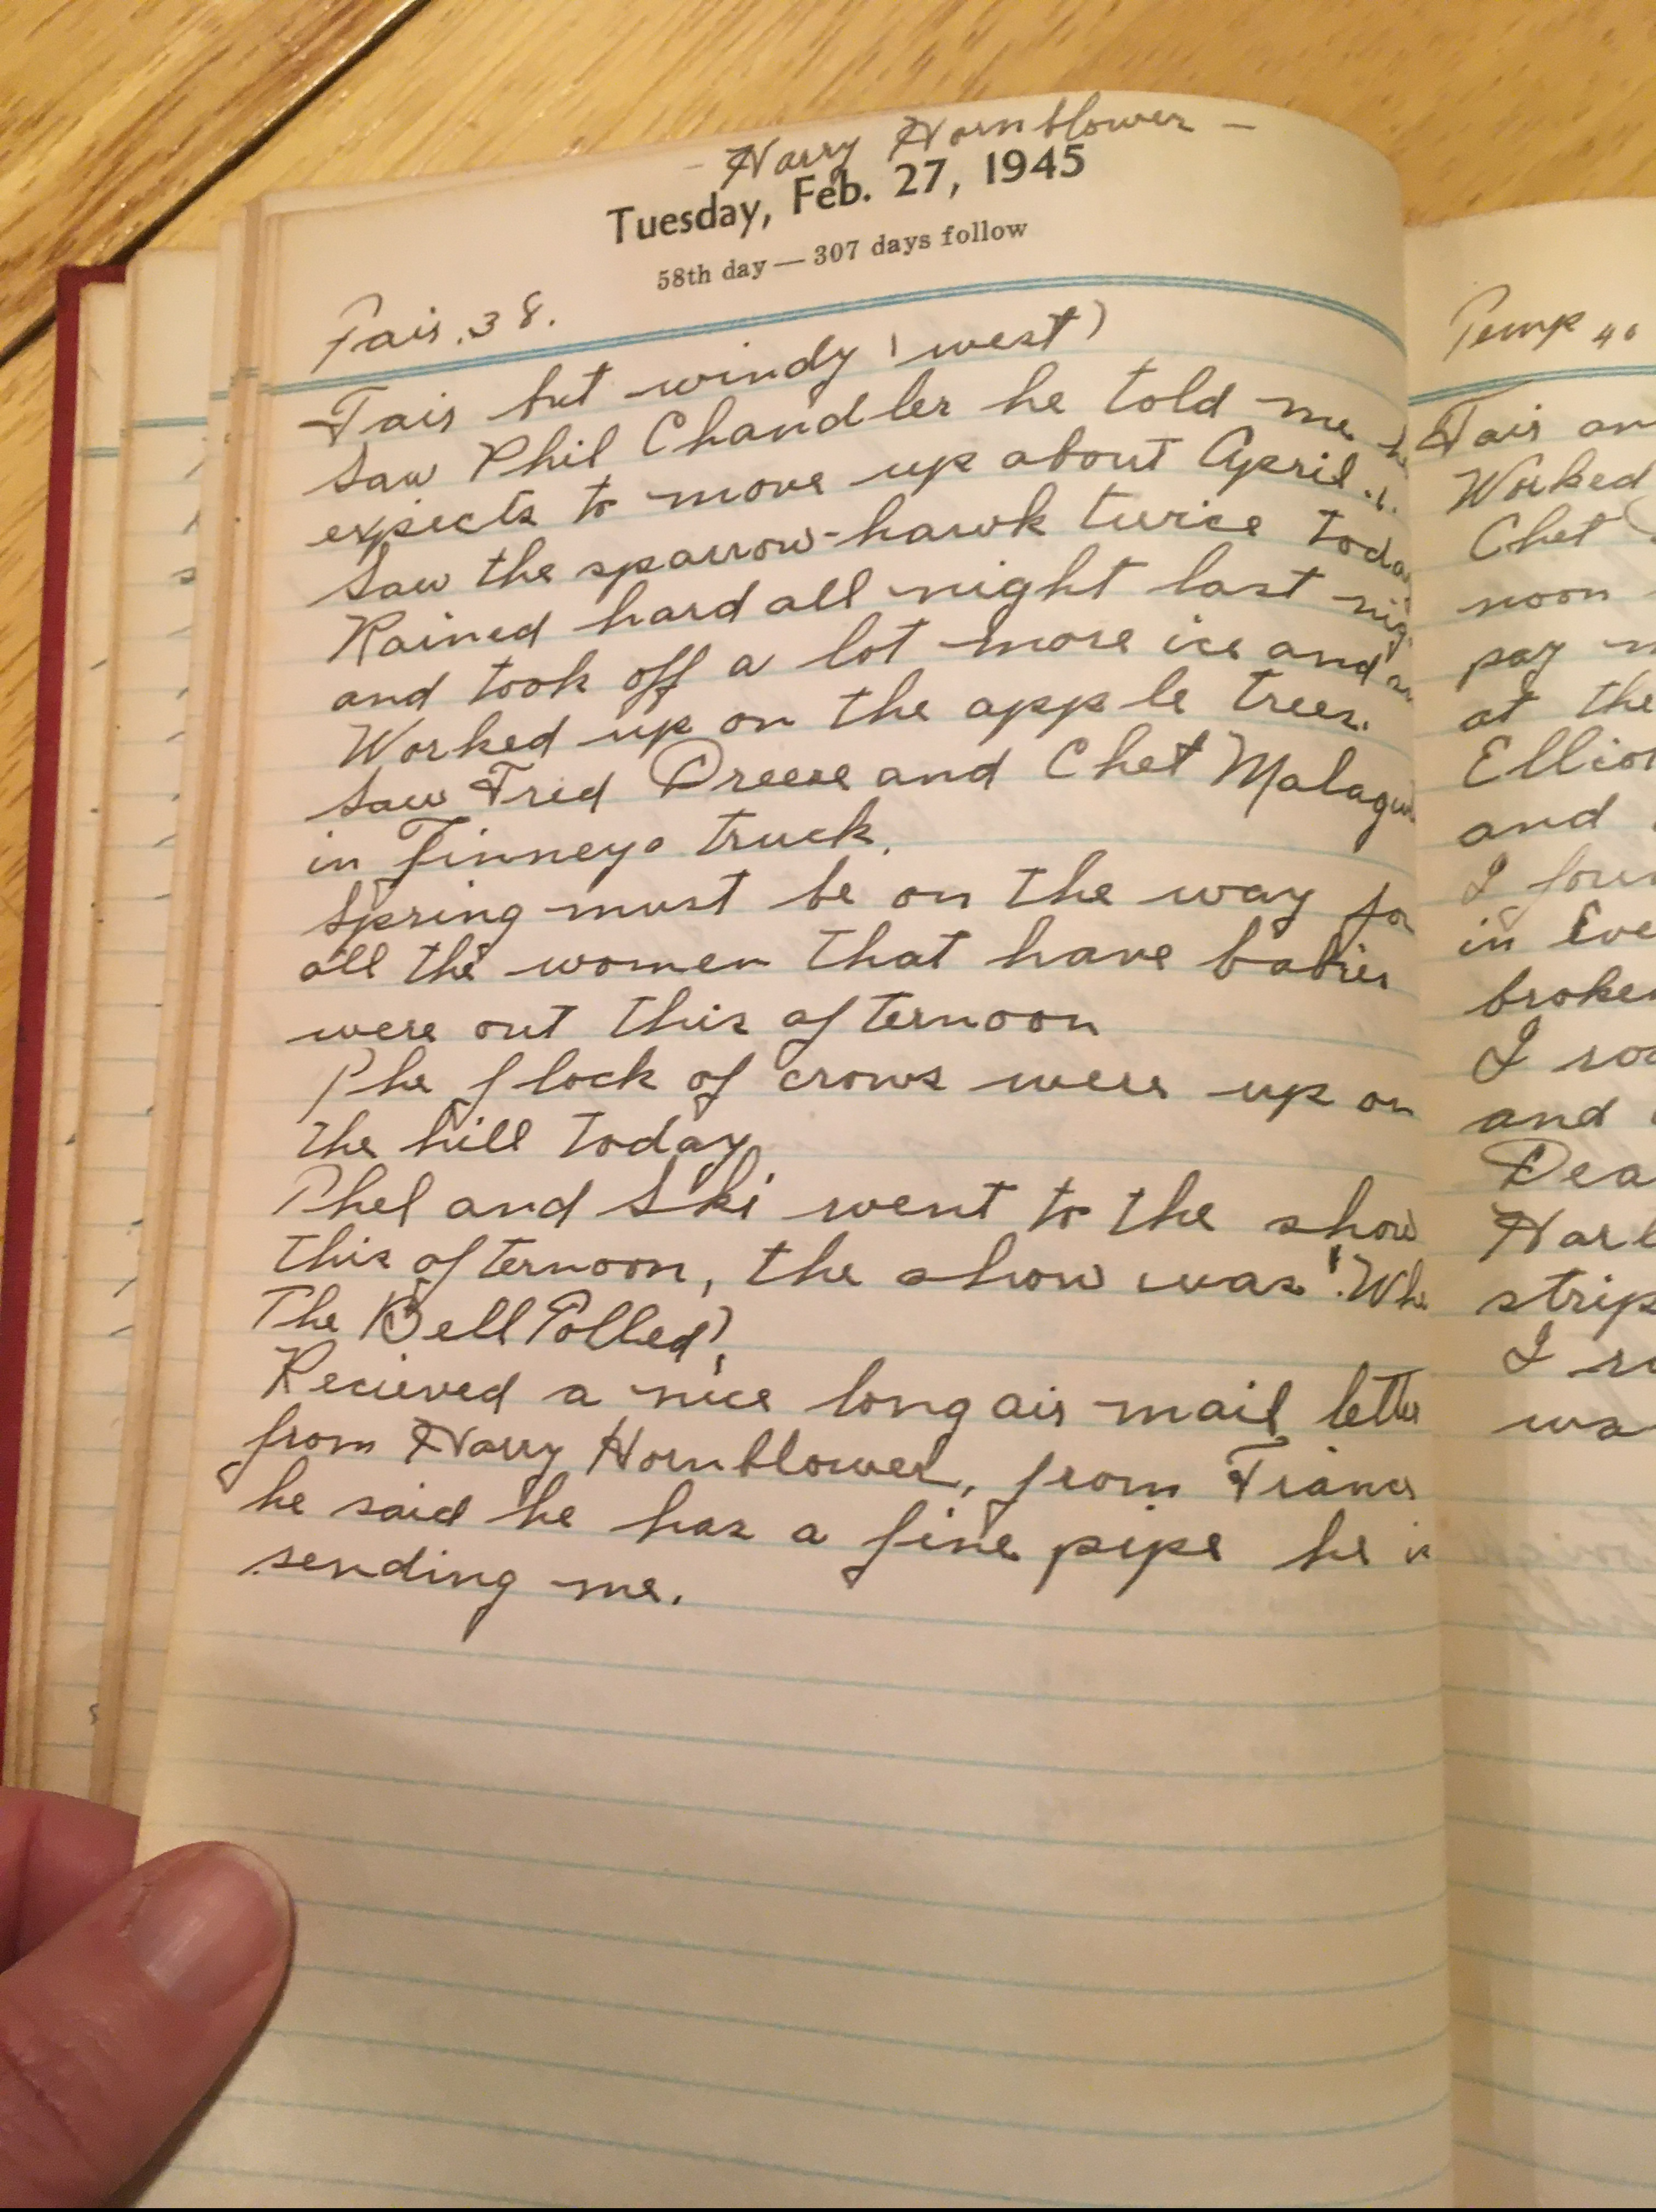 - Harry Hornblower -
Tuesday, Feb. 27, 1945
58th day — 307 days follow
Fair. 38.
Fair but windy (west)
Saw Phil Chandler he told me he
expects to move up about April. 1.
Saw the sparrow-hawk twice toda
Rained hard all night last nig
and took off a lot more ice and
Worked up on the apple trees.
Saw Fred and Chet Malagu
in Finneys truck.
Spring must be on the way for
all the women that have babies
were out this afternoon
The flock of crows were up on
the hill today.
Phel and Ski went to the show
this afternoon, the show was "Whe
The Bell Tolled",
Recieved a nice long air mail letter
from Harry Hornblower, from France
he said he has a fine pipe he is
sending me.
Temp 40
Fair an
Worked
Chet
noon
pay
at the
Ellio
and
I foun
in Eve
broken
I ro
and
Dea
Harl
strip
I
wa